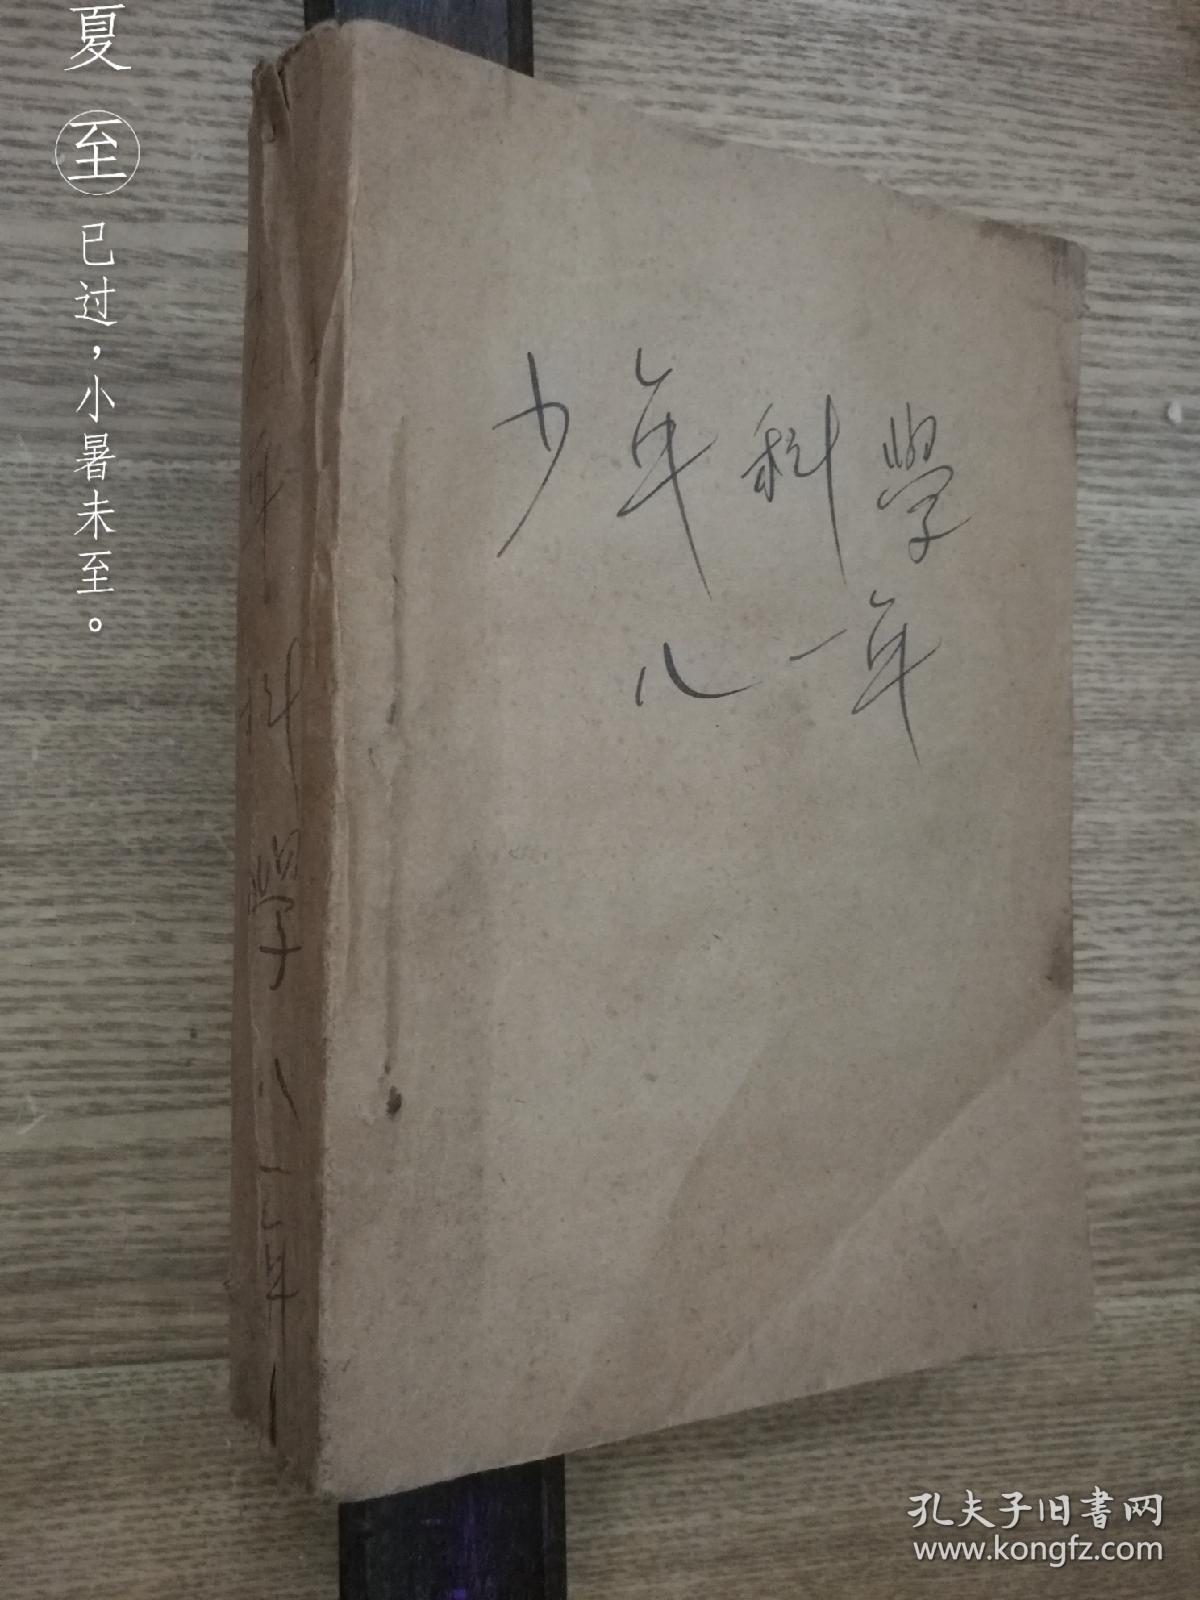 夏至已过，小暑未至。
少年科學
八一年
年科學八一年
孔夫子旧書网
www.kongfz.com